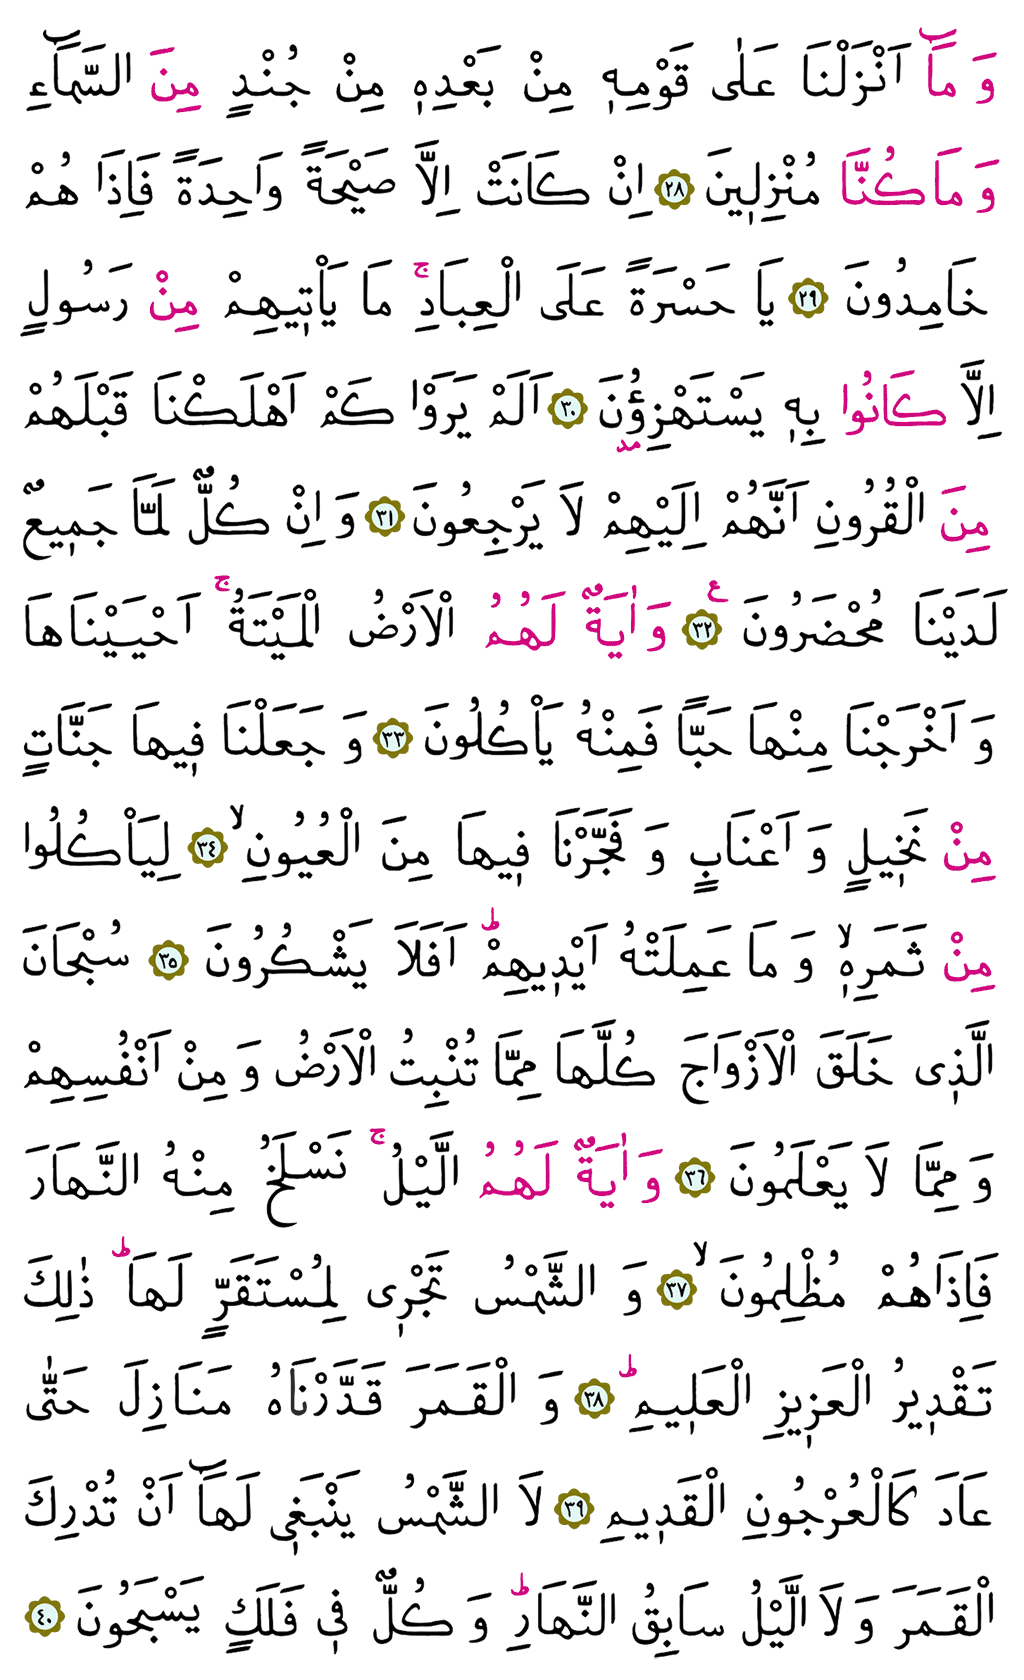 وَ مَٓا اَنْزَلْنَا عَلٰى قَوْمِه۪ مِنْ بَعْدِه۪ مِنْ جُنْدٍ مِنَ السَّمَٓاءِ
وَ مَا كُنَّا مُنْزِل۪ينَ ﴿٢٨﴾ اِنْ كَانَتْ اِلَّا صَيْحَةً وَاحِدَةً فَاِذَا هُمْ
خَامِدُونَ ﴿٢٩﴾ يَا حَسْرَةً عَلَى الْعِبَادِۚ مَا يَاْت۪يهِمْ مِنْ رَسُولٍ
اِلَّا كَانُوا بِه۪ يَسْتَهْزِؤُ۫نَ ﴿٣٠﴾ اَلَمْ يَرَوْا كَمْ اَهْلَكْنَا قَبْلَهُمْ
مِنَ الْقُرُونِ اَنَّهُمْ اِلَيْهِمْ لَا يَرْجِعُونَ ﴿٣١﴾ وَ اِنْ كُلٌّ لَمَّا جَم۪يعٌ
لَدَيْنَا مُحْضَرُونَ ﴿٣٢﴾ ع وَ اٰيَةٌ لَهُمُ الْاَرْضُ الْمَيْتَةُۚ اَحْيَيْنَاهَا
وَ اَخْرَجْنَا مِنْهَا حَبًّا فَمِنْهُ يَاْكُلُونَ ﴿٣٣﴾ وَ جَعَلْنَا ف۪يهَا جَنَّاتٍ
مِنْ نَخ۪يلٍ وَ اَعْنَابٍ وَ فَجَّرْنَا ف۪يهَا مِنَ الْعُيُونِۙ ﴿٣٤﴾ لِيَاْكُلُوا
مِنْ ثَمَرِه۪ۙ وَ مَا عَمِلَتْهُ اَيْد۪يهِمْۜ اَفَلَا يَشْكُرُونَ ﴿٣٥﴾ سُبْحَانَ
الَّذ۪ى خَلَقَ الْاَزْوَاجَ كُلَّهَا مِمَّا تُنْبِتُ الْاَرْضُ وَ مِنْ اَنْفُسِهِمْ
وَ مِمَّا لَا يَعْلَمُونَ ﴿٣٦﴾ وَ اٰيَةٌ لَهُمُ الَّيْلُۚ نَسْلَخُ مِنْهُ النَّهَارَ
فَاِذَا هُمْ مُظْلِمُونَۙ ﴿٣٧﴾ وَ الشَّمْسُ تَجْر۪ى لِمُسْتَقَرٍّ لَهَاۜ ذٰلِكَ
تَقْد۪يرُ الْعَز۪يزِ الْعَل۪يمِۜ ﴿٣٨﴾ وَ الْقَمَرَ قَدَّرْنَاهُ مَنَازِلَ حَتّٰى
عَادَ كَالْعُرْجُونِ الْقَد۪يمِ ﴿٣٩﴾ لَا الشَّمْسُ يَنْبَغ۪ى لَهَٓا اَنْ تُدْرِكَ
الْقَمَرَ وَ لَا الَّيْلُ سَابِقُ النَّهَارِۜ وَ كُلٌّ ف۪ى فَلَكٍ يَسْبَحُونَ ﴿٤٠﴾